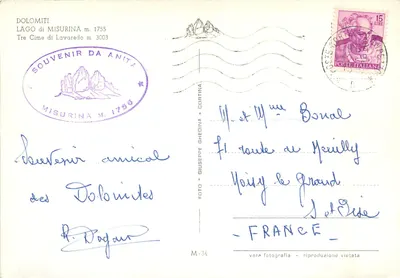 DOLOMITI
LAGO di MISURINA m. 1755
Tre Cime di Lavaredo m. 3003
SOUVENIR DA ANITA
MISURINA M. 1756
Souvenir amical
des Dolomites
FOTO GIUSEPPE GHEDINA - CORTINA
M-14
15
POSTE ITALIANE
M. et Mme Bonal
71 route de Neuilly
Noisy le Grand
S et Oise
FRANCE
vera fotografia - riproduzione vietata